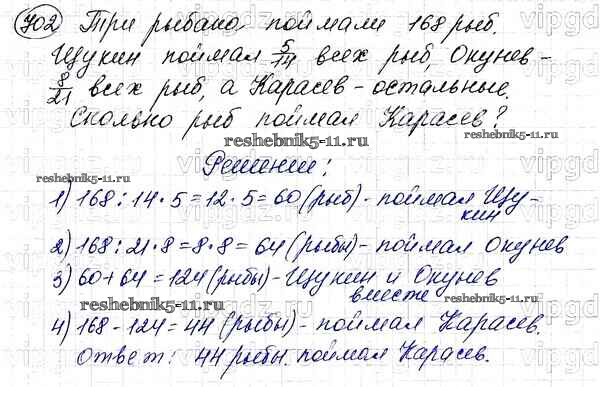 702 Три рыбака поймали 168 рыб.
Щукин поймал 5/14 всех рыб, Окунев -
8/21 всех рыб, а Карасев - остальные.
Сколько рыб поймал Карасев?
reshebnik5-11.ru
Решение:
reshebnik5-11.ru
1) 168 : 14 · 5 = 12 · 5 = 60 (рыб) - поймал Щу-
кин
2) 168 : 21 · 8 = 8 · 8 = 64 (рыбы) - поймал Окунев
3) 60 + 64 = 124 (рыбы) - Щукин и Окунев
вместе
reshebnik5-11.ru
reshebnik5-11.ru
4) 168 - 124 = 44 (рыбы) - поймал Карасев.
Ответ: 44 рыбы. поймал Карасев.